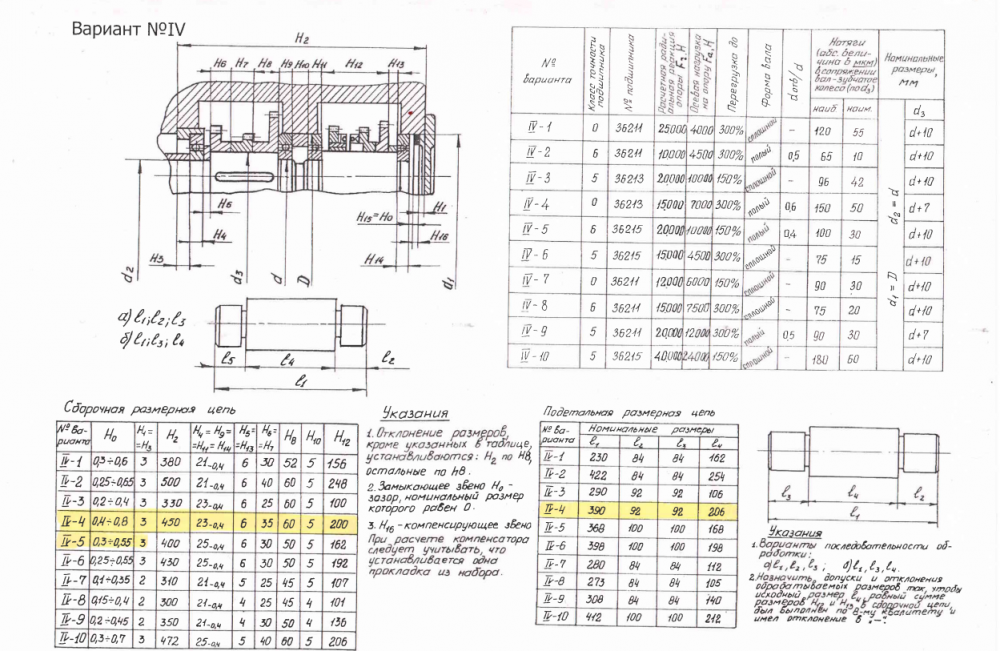 Вариант №IV
H₂
H₆ H₇ H₈ H₉ H₁₀ H₁₁ H₁₂ H₁₃
H₅
H₄
H₃
H₁
H₁₅=H₀
H₁₆
H₁₄
d₂ d₃ d D d₁
а) l₁; l₂; l₃
б) l₁; l₃; l₄
l₅ l₄ l₂
l₁
№ варианта | Класс точности подшипника | № подшипника | Расчетная радиальная реакция опоры Fr, Н | Осевая нагрузка на опору Fa, Н | Перегрузка до | Форма вала | dотв/d | Натяги (абс. величина в мкм) в сопряжении вал-зубчатое колесо (по d₃) | Номинальные размеры, мм
наиб | наим. | d₃
IV-1 0 36211 25000 4000 300% сплошной – 120 55 d+10
IV-2 6 36211 10000 4500 300% полый 0,5 65 10 d+10
IV-3 5 36213 20000 10000 150% сплошной – 96 42 d+10
IV-4 0 36213 15000 7000 300% полый 0,6 150 50 d+7
IV-5 6 36215 20000 10000 150% полый 0,4 100 30 d+10
IV-6 5 36215 15000 4500 300% сплошной – 75 15 d+10
IV-7 0 36211 12000 6000 150% сплошной – 90 30 d+10
IV-8 6 36211 15000 7500 300% сплошной – 75 20 d+10
IV-9 5 36211 20000 12000 300% полый 0,5 90 30 d+7
IV-10 5 36215 40000 24000 150% сплошной – 180 60 d+10
d₁ = D d₂ = d
Сборочная размерная цепь
№ варианта | H₀ | H₁= =H₃ | H₂ | H₄=H₉= =H₁₁=H₁₄ | H₅= =H₁₃ | H₆= =H₇ | H₈ | H₁₀ | H₁₂
IV-1 0,3÷0,6 3 380 21-0,4 6 30 52 5 156
IV-2 0,25÷0,65 3 500 21-0,4 6 40 60 5 248
IV-3 0,2÷0,4 3 330 23-0,4 6 25 60 5 100
IV-4 0,4÷0,8 3 450 23-0,4 6 35 60 5 200
IV-5 0,3÷0,55 3 400 25-0,4 6 30 50 5 162
IV-6 0,25÷0,55 3 430 25-0,4 6 30 50 5 192
IV-7 0,1÷0,35 2 310 21-0,4 5 25 45 5 107
IV-8 0,15÷0,4 2 300 21-0,4 4 25 45 4 101
IV-9 0,2÷0,45 2 350 21-0,4 4 30 50 4 136
IV-10 0,3÷0,7 3 472 25-0,4 5 40 60 5 206
Указания
1. Отклонение размеров,
кроме указанных в таблице,
устанавливаются: H₂ по H8,
остальные по h8.
2. Замыкающее звено H₀ -
зазор, номинальный размер
которого равен 0.
3. H₁₆ - компенсирующее звено
При расчете компенсатора
следует учитывать, что
устанавливается одна
прокладка из набора.
Подетальная размерная цепь
№ варианта | Номинальные размеры
l₁ l₂ l₃ l₄
IV-1 230 84 84 162
IV-2 422 84 84 254
IV-3 290 92 92 106
IV-4 390 92 92 206
IV-5 368 100 100 168
IV-6 398 100 100 198
IV-7 280 84 84 112
IV-8 273 84 84 105
IV-9 308 84 84 140
IV-10 412 100 100 212
l₃ l₄ l₂
l₁
Указания
1. Варианты последовательности обработки:
а) l₁, l₂, l₃; б) l₁, l₃, l₄.
2. Назначить допуски и отклонения
обрабатываемых размеров так, чтобы
исходный размер l₄, равный сумме
размеров H₁₂ и H₁₃ в сборочной цепи,
был выполнен по 8-му квалитету и
имел отклонение в „–".